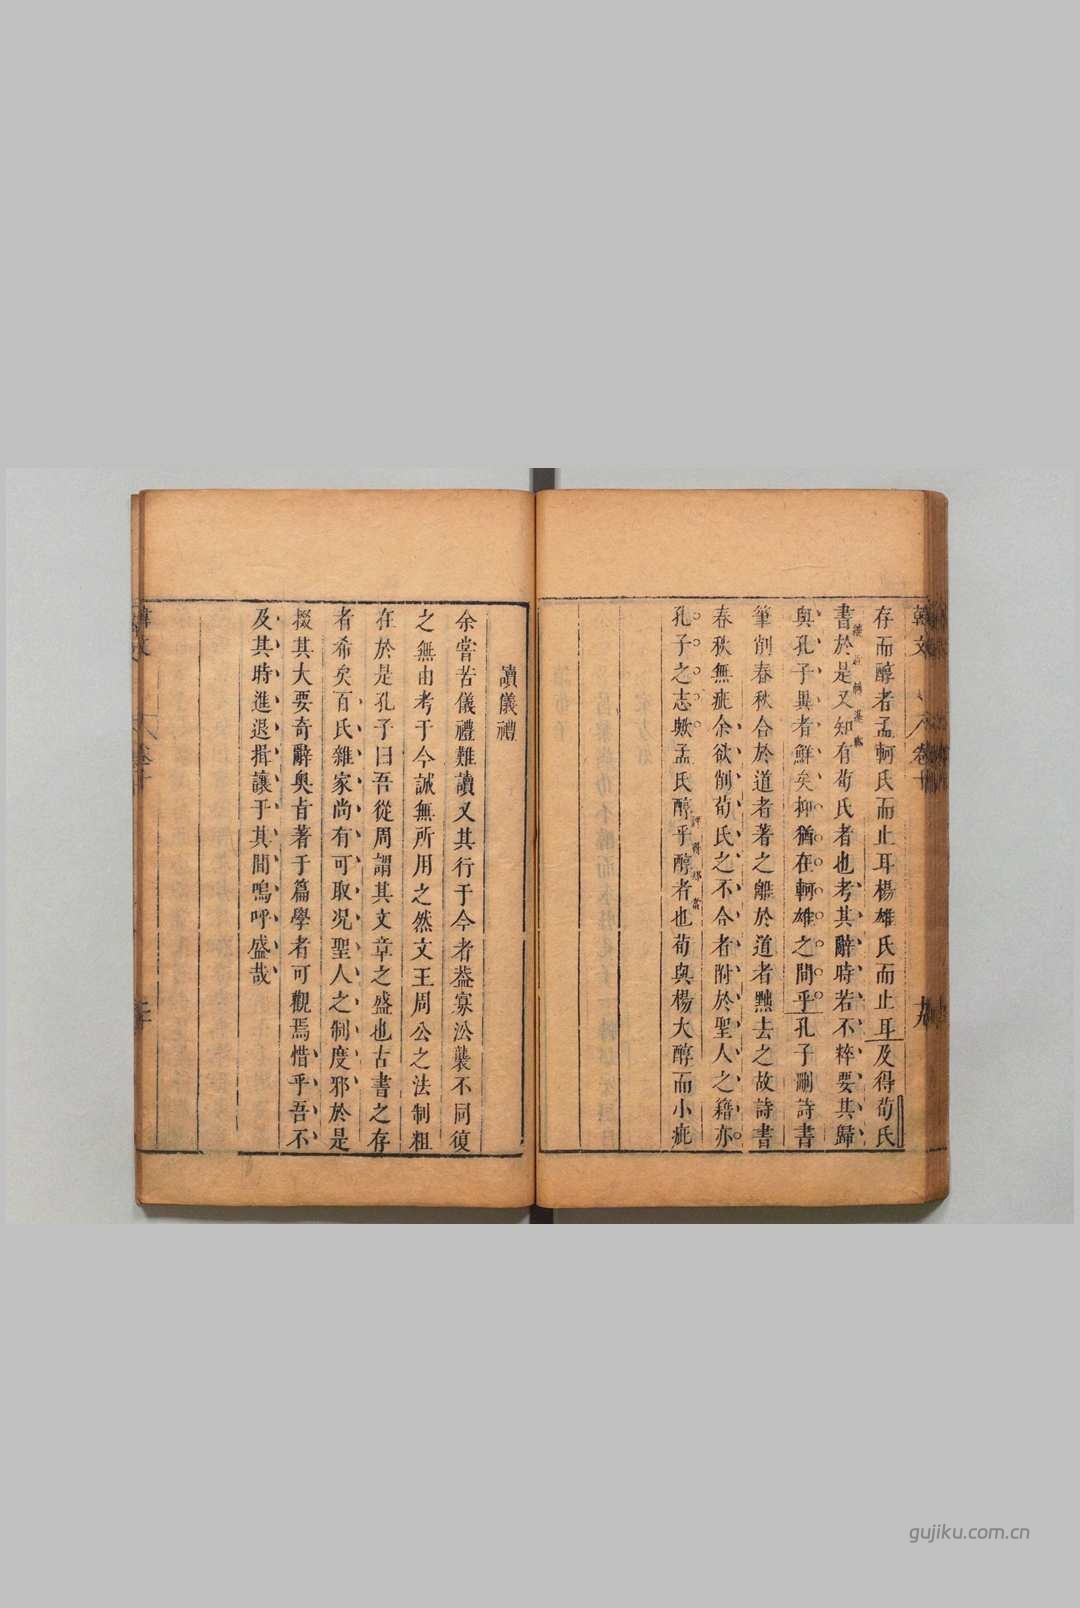 存而醇者孟軻氏而止耳楊雄氏而止耳及得荀氏
書於是又知有荀氏者也考其辭時若不粹要其歸
與孔子異者鮮矣抑猶在軻雄之間乎孔子刪詩書
筆削春秋合於道者著之離於道者黜去之故詩書
春秋無疵余欲削荀氏之不合者附於聖人之籍亦
孔子之志歟孟氏醇乎醇者也荀與楊大醇而小疵
讀儀禮
余嘗苦儀禮難讀又其行于今者葢寡沿襲不同復
之無由考于今誠無所用之然文王周公之法制粗
在於是孔子曰吾從周謂其文章之盛也古書之存
者希矣百氏雜家尚有可取况聖人之制度邪於是
掇其大要奇辭奧旨著于篇學者可觀焉惜乎吾不
及其時進退揖讓于其間嗚呼盛哉
韓文 卷十 十九
gujiku.com.cn